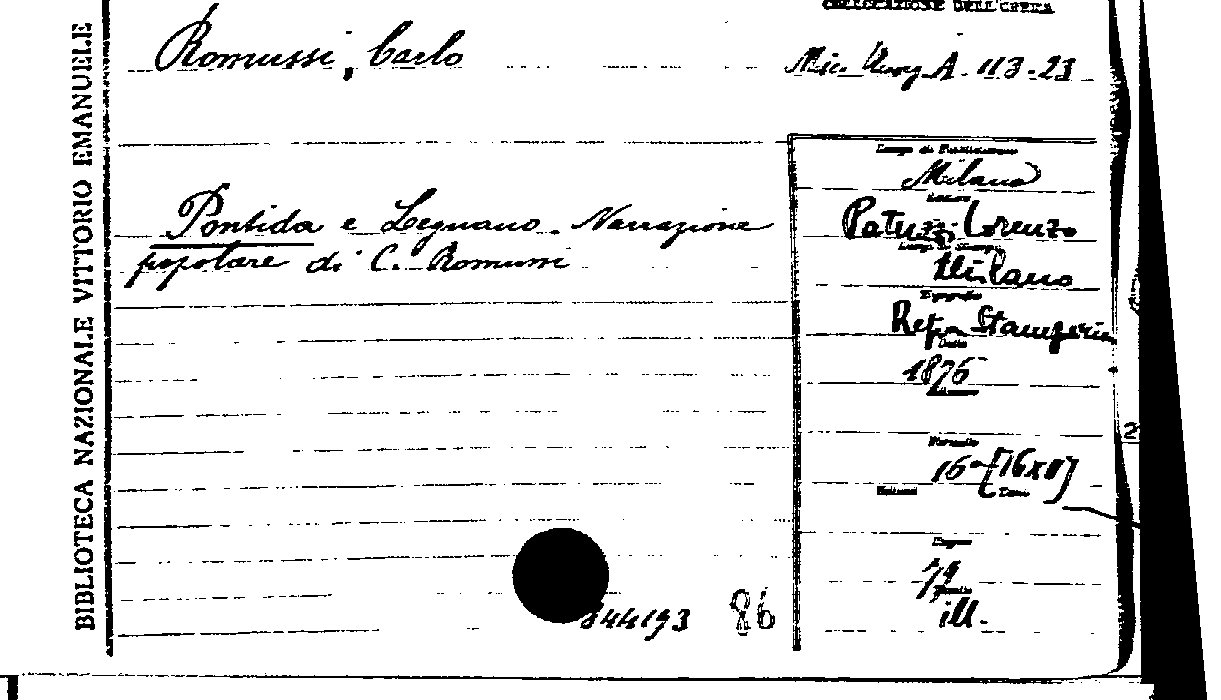 COLLOCAZIONE DELL'OPERA
Romussi, Carlo
A. 113.23
BIBLIOTECA NAZIONALE VITTORIO EMANUELE
Pontida e Legnano. Narrazione
popolare di C. Romussi
Luogo di Pubblicazione
Milano
Editore
Patuzzi Lorenzo
Luogo di Stampa
Milano
Tipografia
Stamperia
Data
1876
Formato
16°
Volumi Tomi
Pagine
79
ill.
344193 86
2